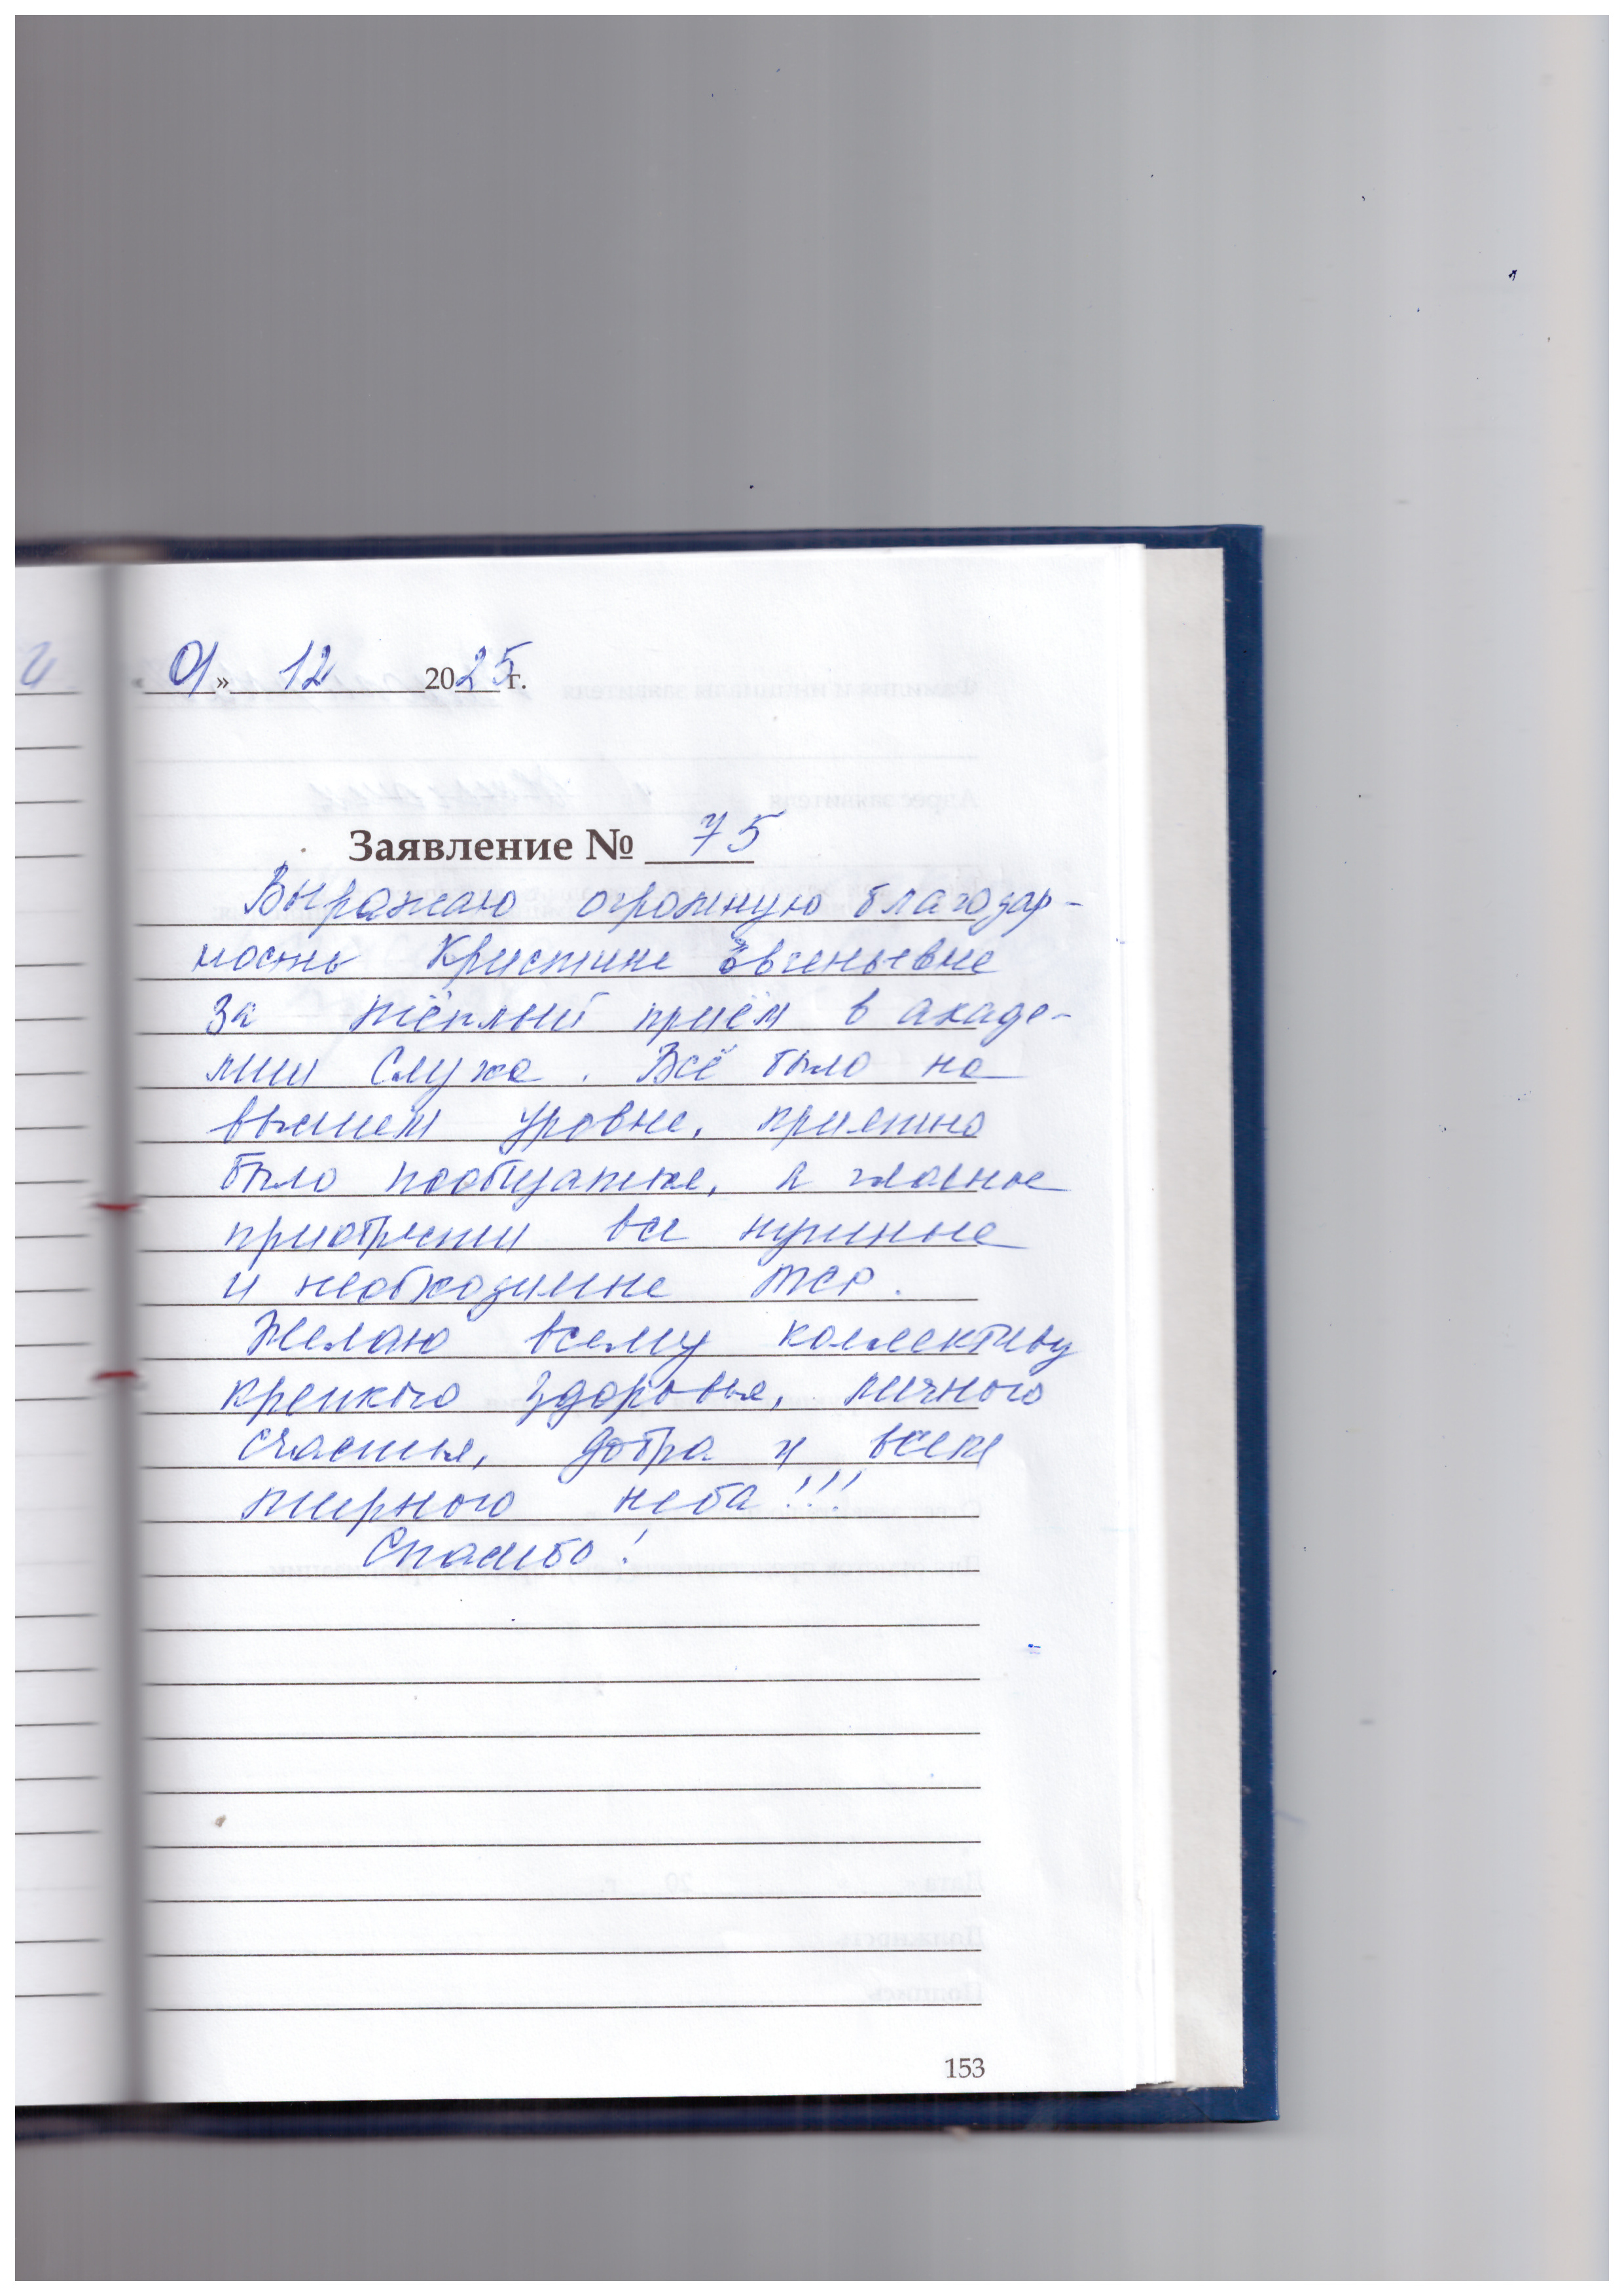 « 01 » 12 2025 г.
Заявление № 75
Выражаю огромную благодар-
ность Кристине Евгеньевне
за тёплый приём в акаде-
мии Слуха. Всё было на
высшем уровне, приятно
было пообщаться, а главное
приобрести все нужные
и необходимые ТСР.
Желаю всему коллективу
крепкого здоровья, личного
счастья, добра и всем
мирного неба!!!
Спасибо!
153